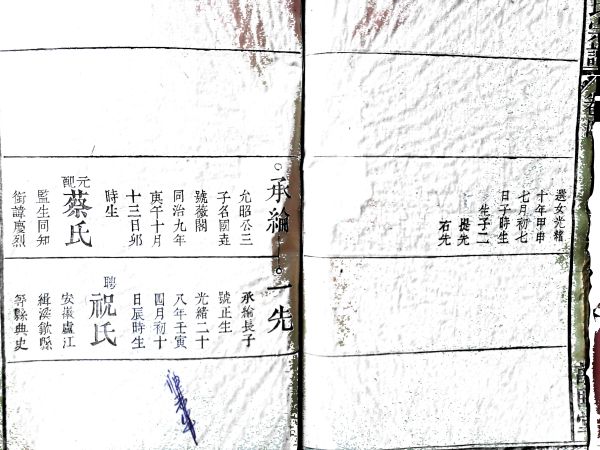 選女光緒
十年甲申
七月初七
日子時生
生子二
提先
右先
承綸
允昭公三
子名國垚
號薇閣
同治九年
庚午十月
十三日卯
時生
元配
蔡氏
監生同知
銜諱慶烈
一先
承綸長子
號正生
光緒二十
八年壬寅
四月初十
日辰時生
聘
祝氏
安徽廬江
縣典史